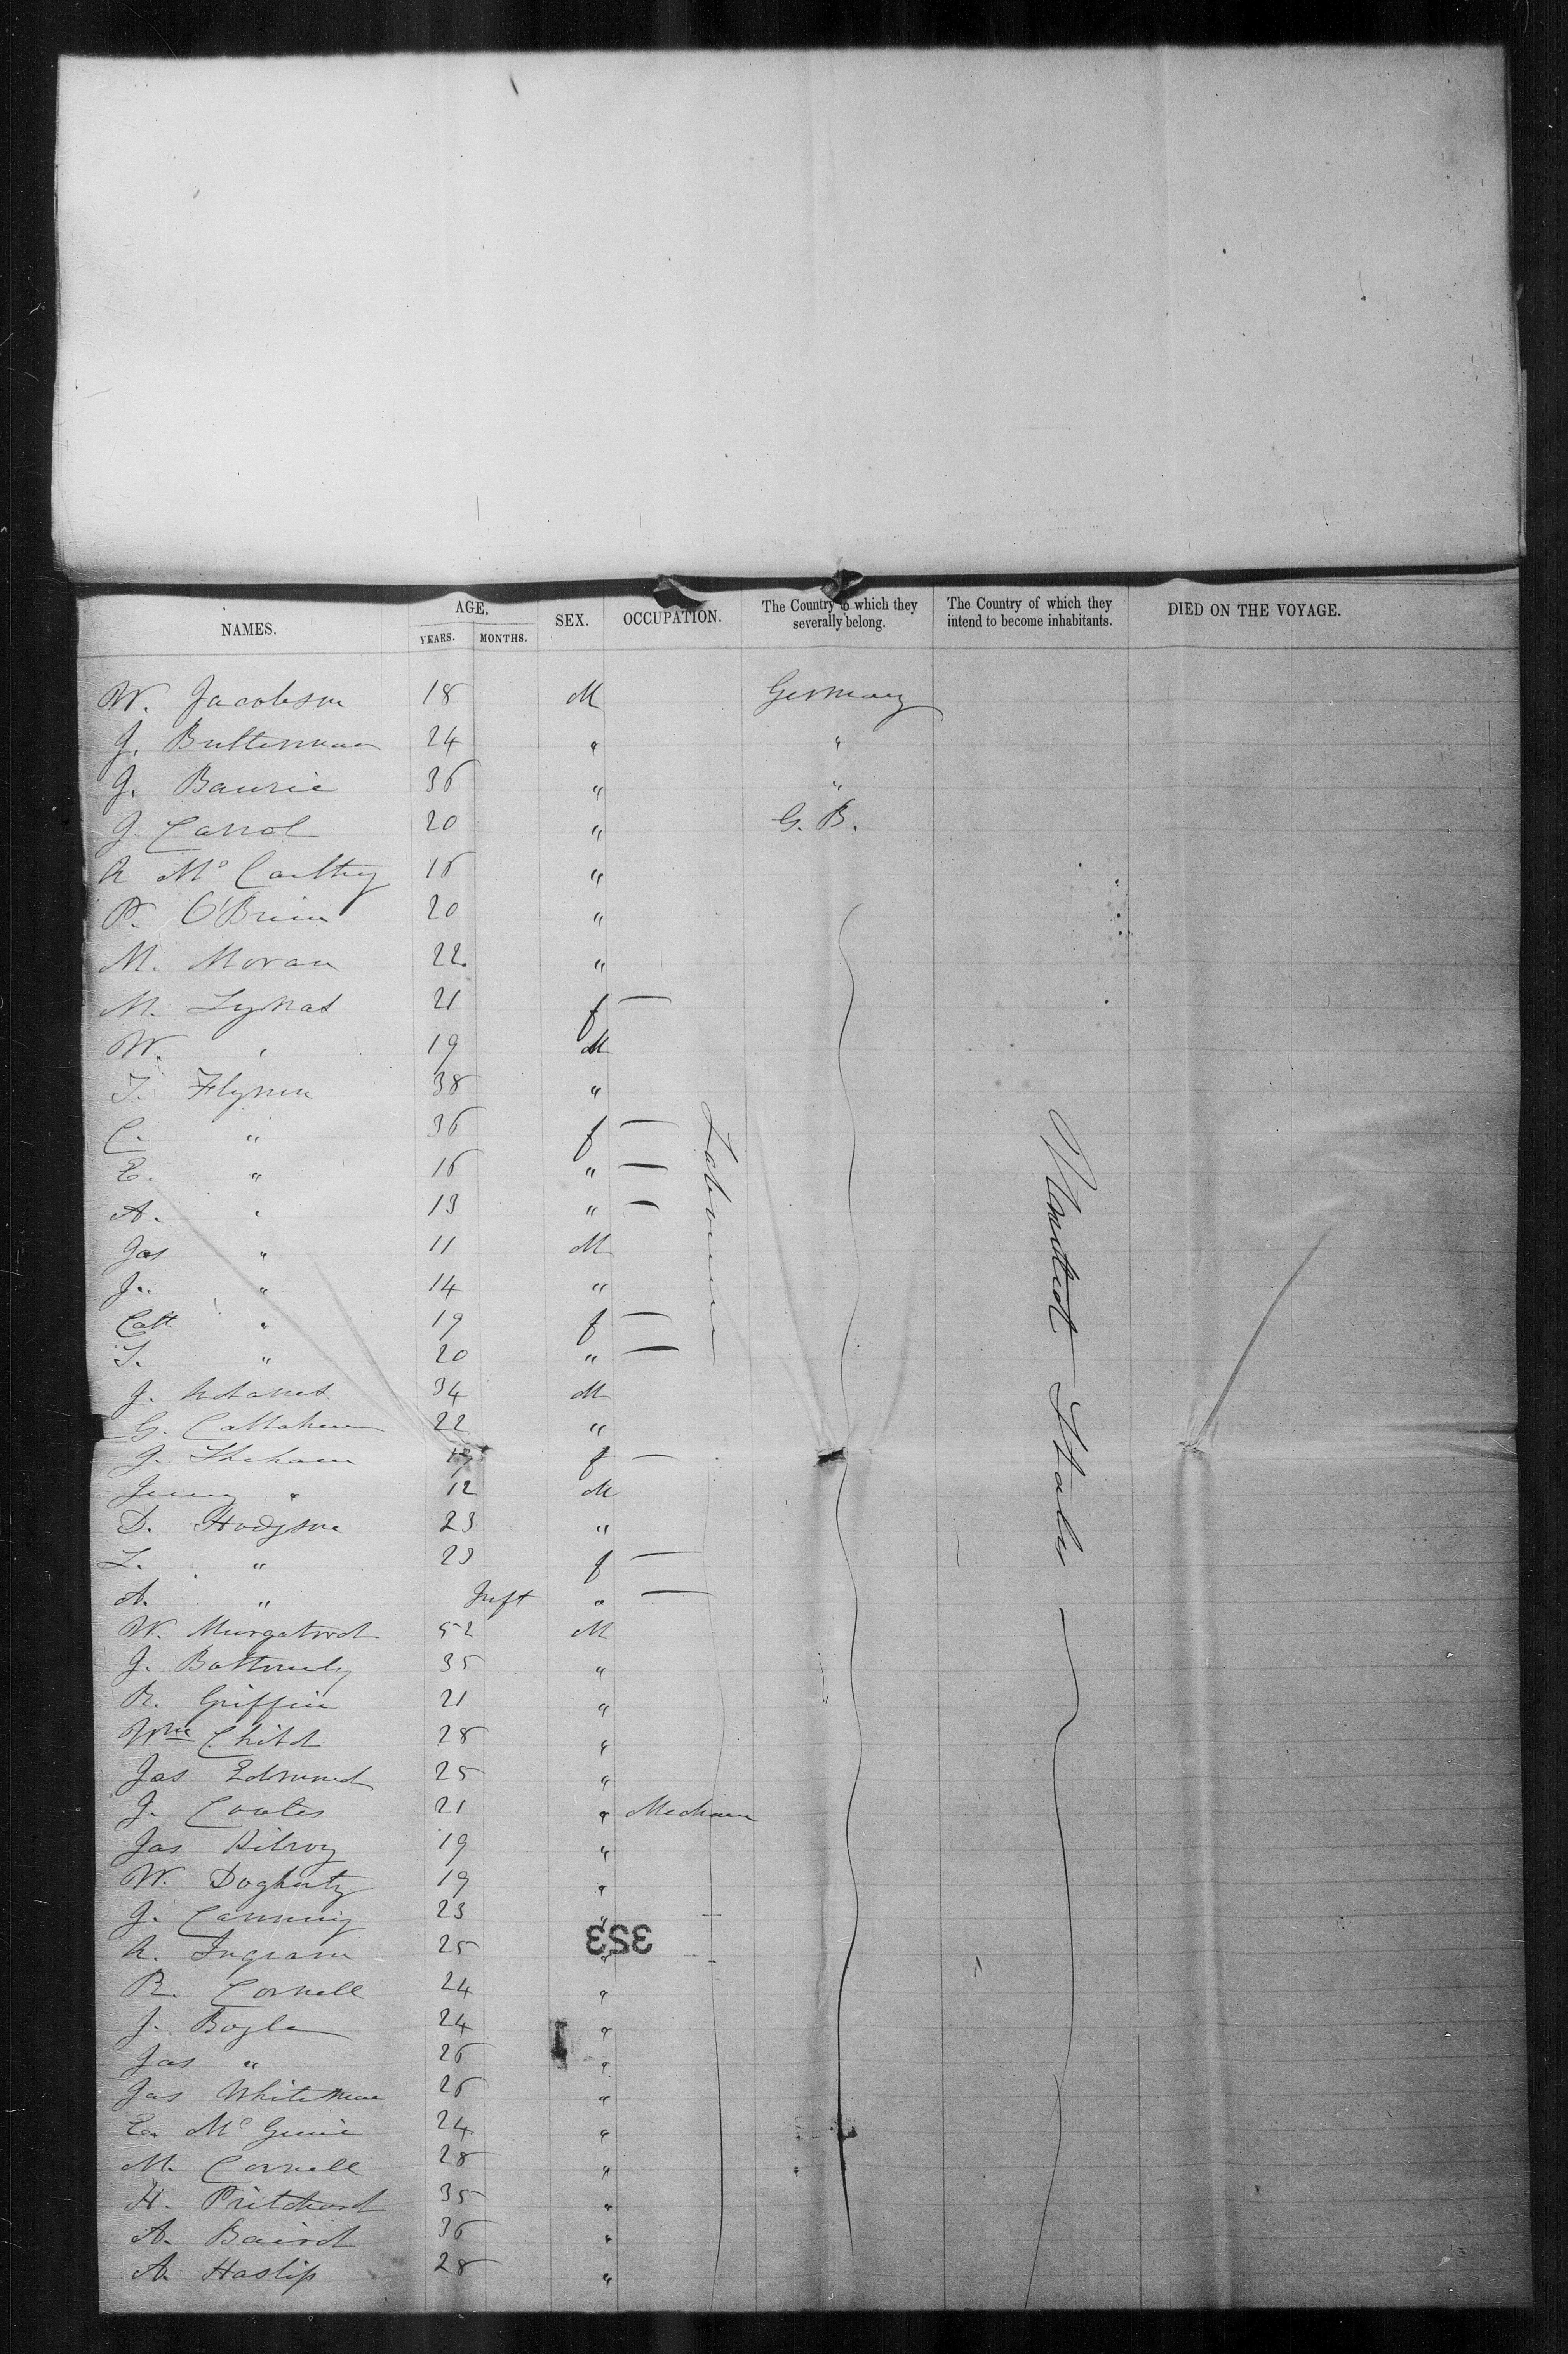 NAMES. AGE, SEX. OCCUPATION. The Country to which they severally belong. The Country of which they intend to become inhabitants. DIED ON THE VOYAGE.
YEARS. MONTHS.
W. Jacobson 18 M Germany
J. Butterman 24 " "
J. Baurie 36 " "
J. Carrol 20 " G. B.
A Mc Carthy 16 "
P. O'Brien 20 "
M. Moran 22. "
M. 21 f —
W. " 19 M
T. Flynn 38 "
C. " 36 f —
E. " 16 " —
A. " 13 " —
Jas " 11 M
J. " 14 "
Cath " 19 f —
T. " 20 " —
Labourers
United States
J. 34 M
G. Callahan 22 "
J. 19 f —
" 12 M
D. Hodgson 23 "
L. " 23 f —
A. " Inft " —
W. Murgatrod 52 M
J. Bottomly 35 "
R. Griffin 21 "
Wm Child 28 "
Jas Edmund 25 "
J. Coates 21 "
Jas Kilroy 19 "
W. Dogherty 19 "
J. Canning 23 "
323
A. Ingram 25 "
R. Cornell 24 "
J. Bogle 24 "
Jas " 26 "
Jas Whiteman 26 "
E. Mc Guire 24 "
M. Cornell 28 "
H. Pritchard 35 "
A. Baird 36 "
A. Haslip 28 "